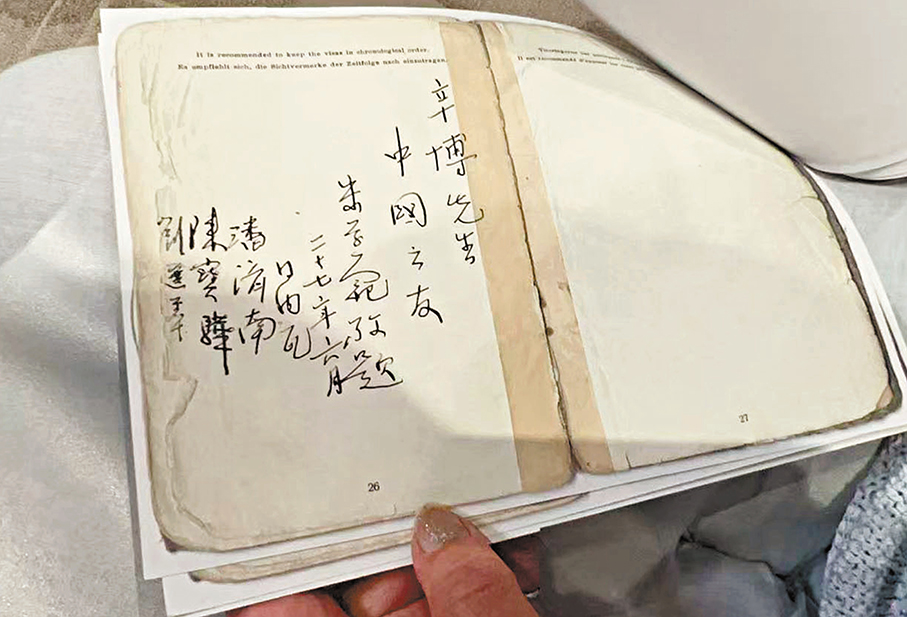 It is recommended to keep the visas in chronological order.
Es empfiehlt sich, die Sichtvermerke der Zeitfolge nach einzutragen.
辛博先生
中國之友
朱学範敬題
二十七年六月
日内瓦
潘濟南
陳寶驊
劉選
26
Il est recommandé d'apposer les
27